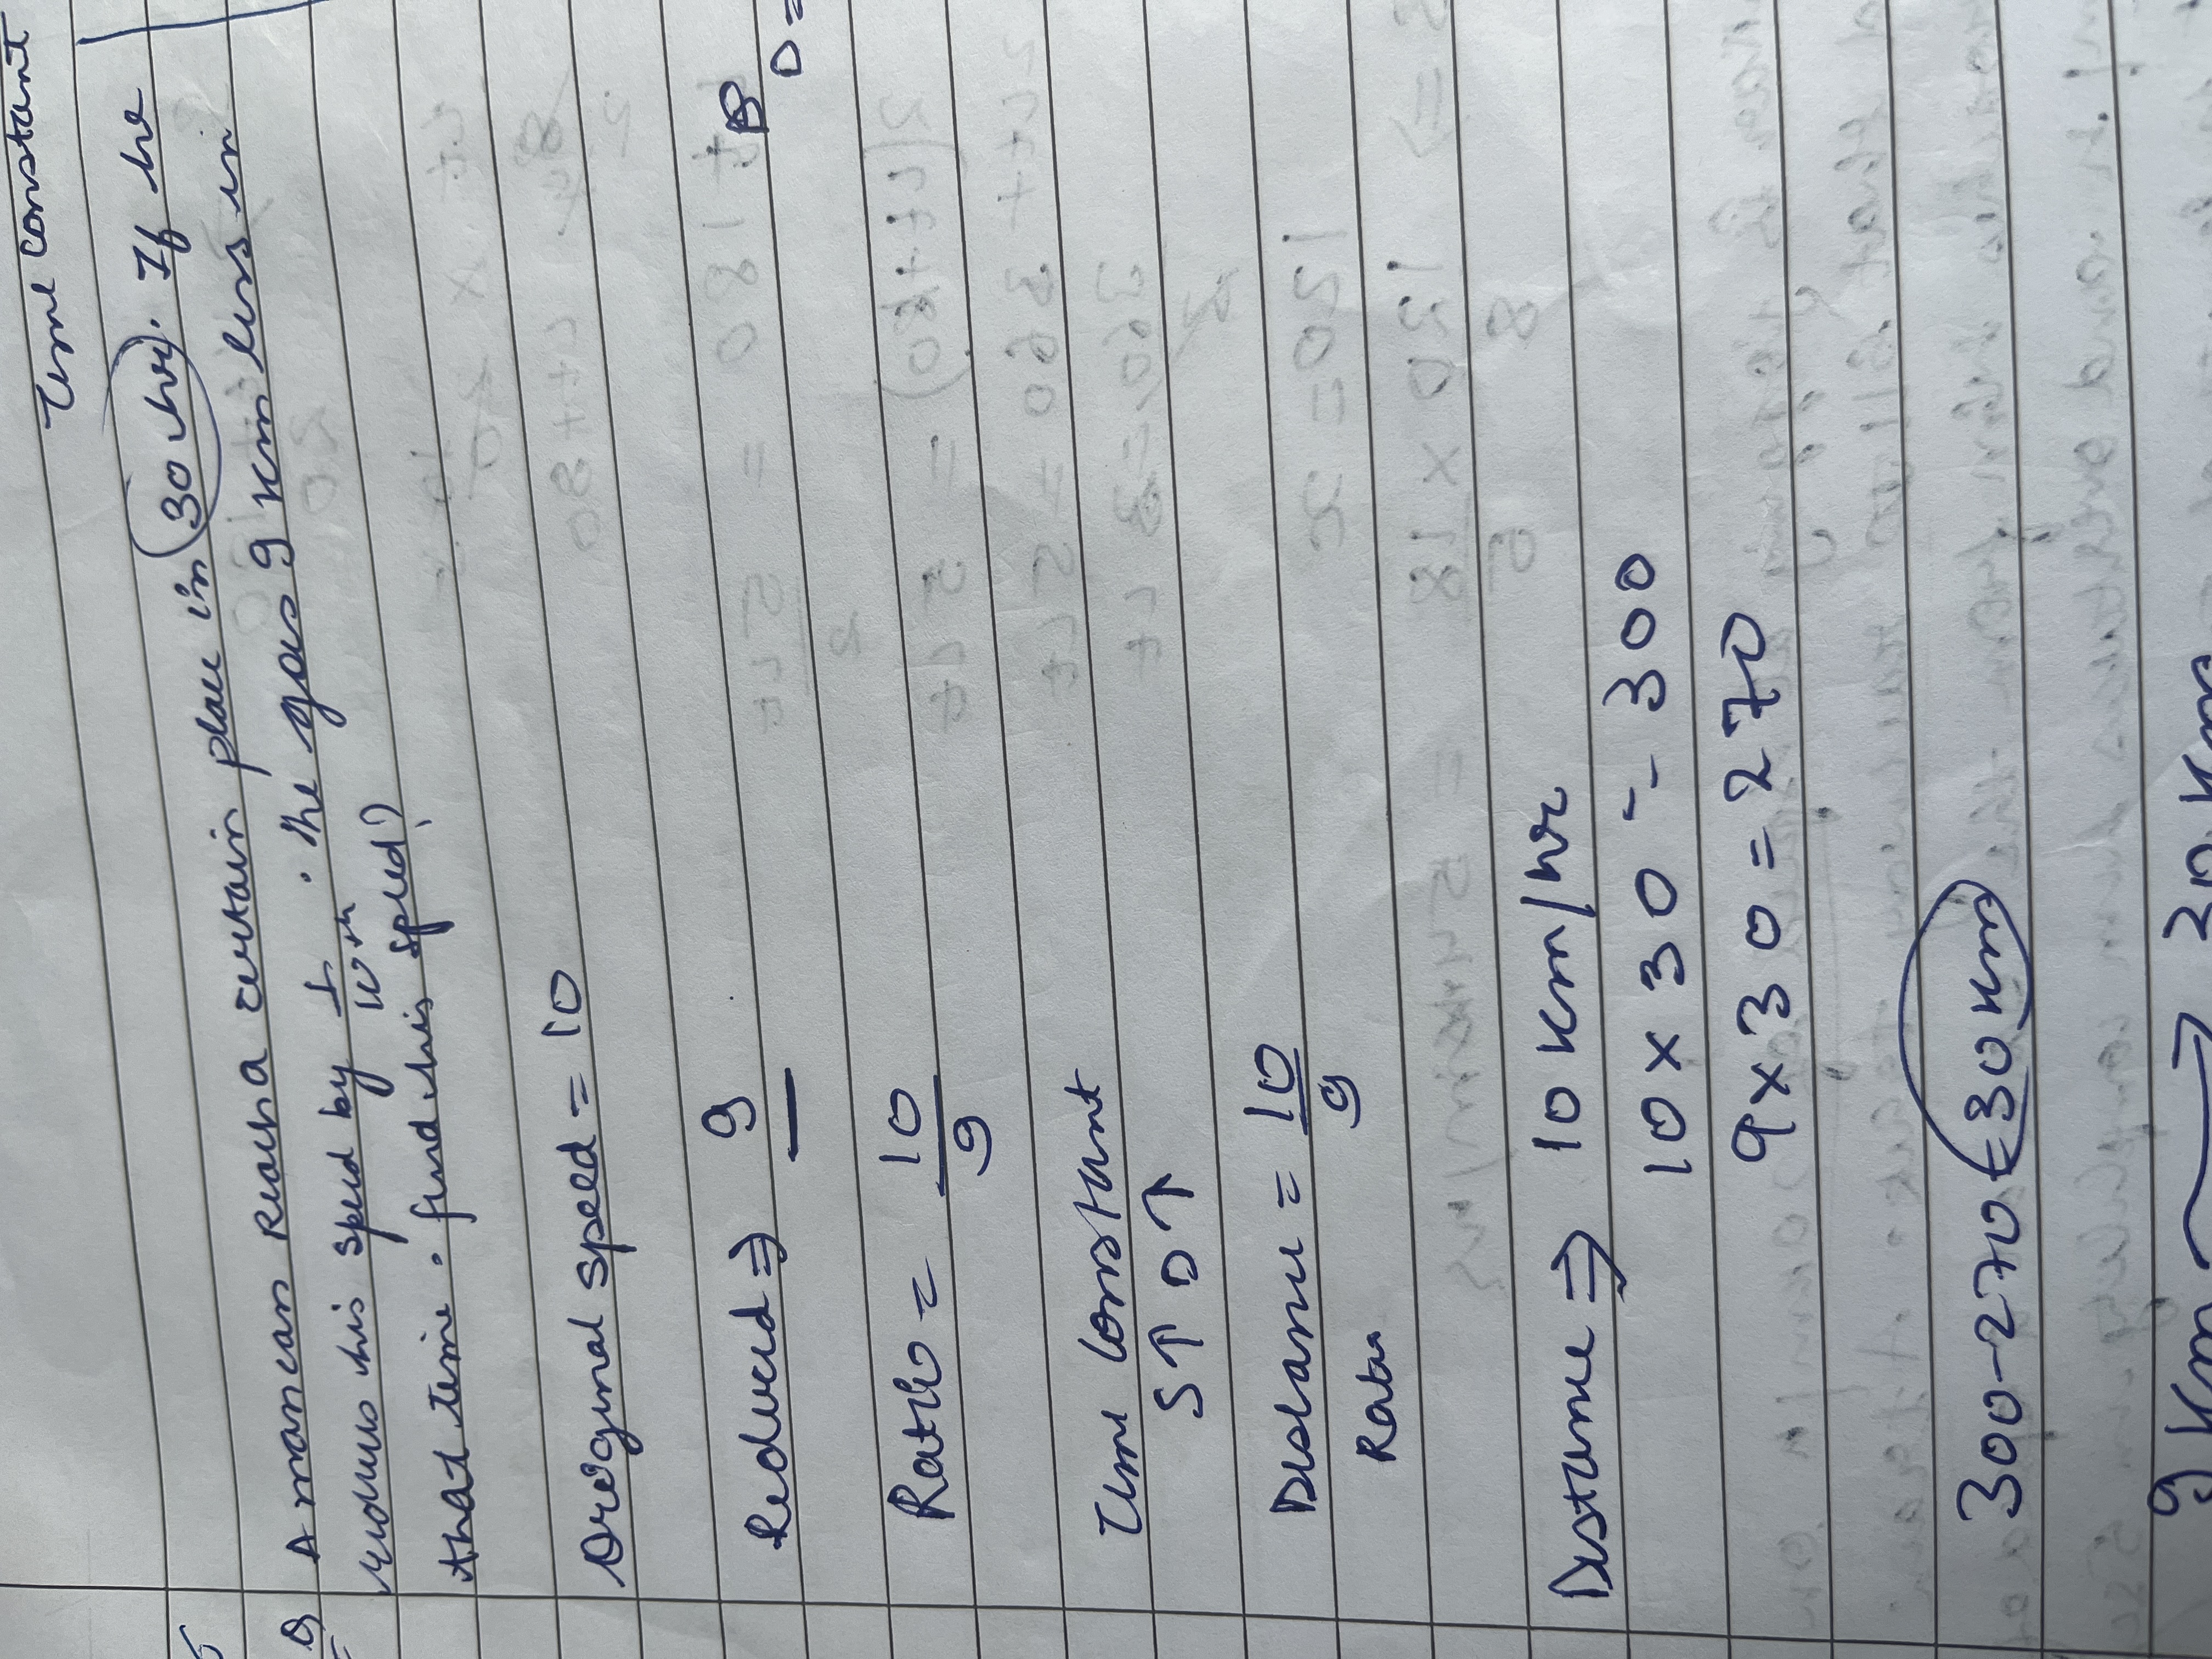 Time constant
Q A man can reach a certain place in 30 hr. If he
reduces his speed by 1/10th. the goes 9 km less in
that time. find his speed?
Original speed = 10
Reduced ⇒ 9
Ratio = 10/9
D =
Time constant
S↑ D↑
Distance = 10/9
Ratio
Distance ⇒ 10 km/hr
10 × 30 = 300
9 × 30 = 270
300-270 = 30 km
9 km → 30 km